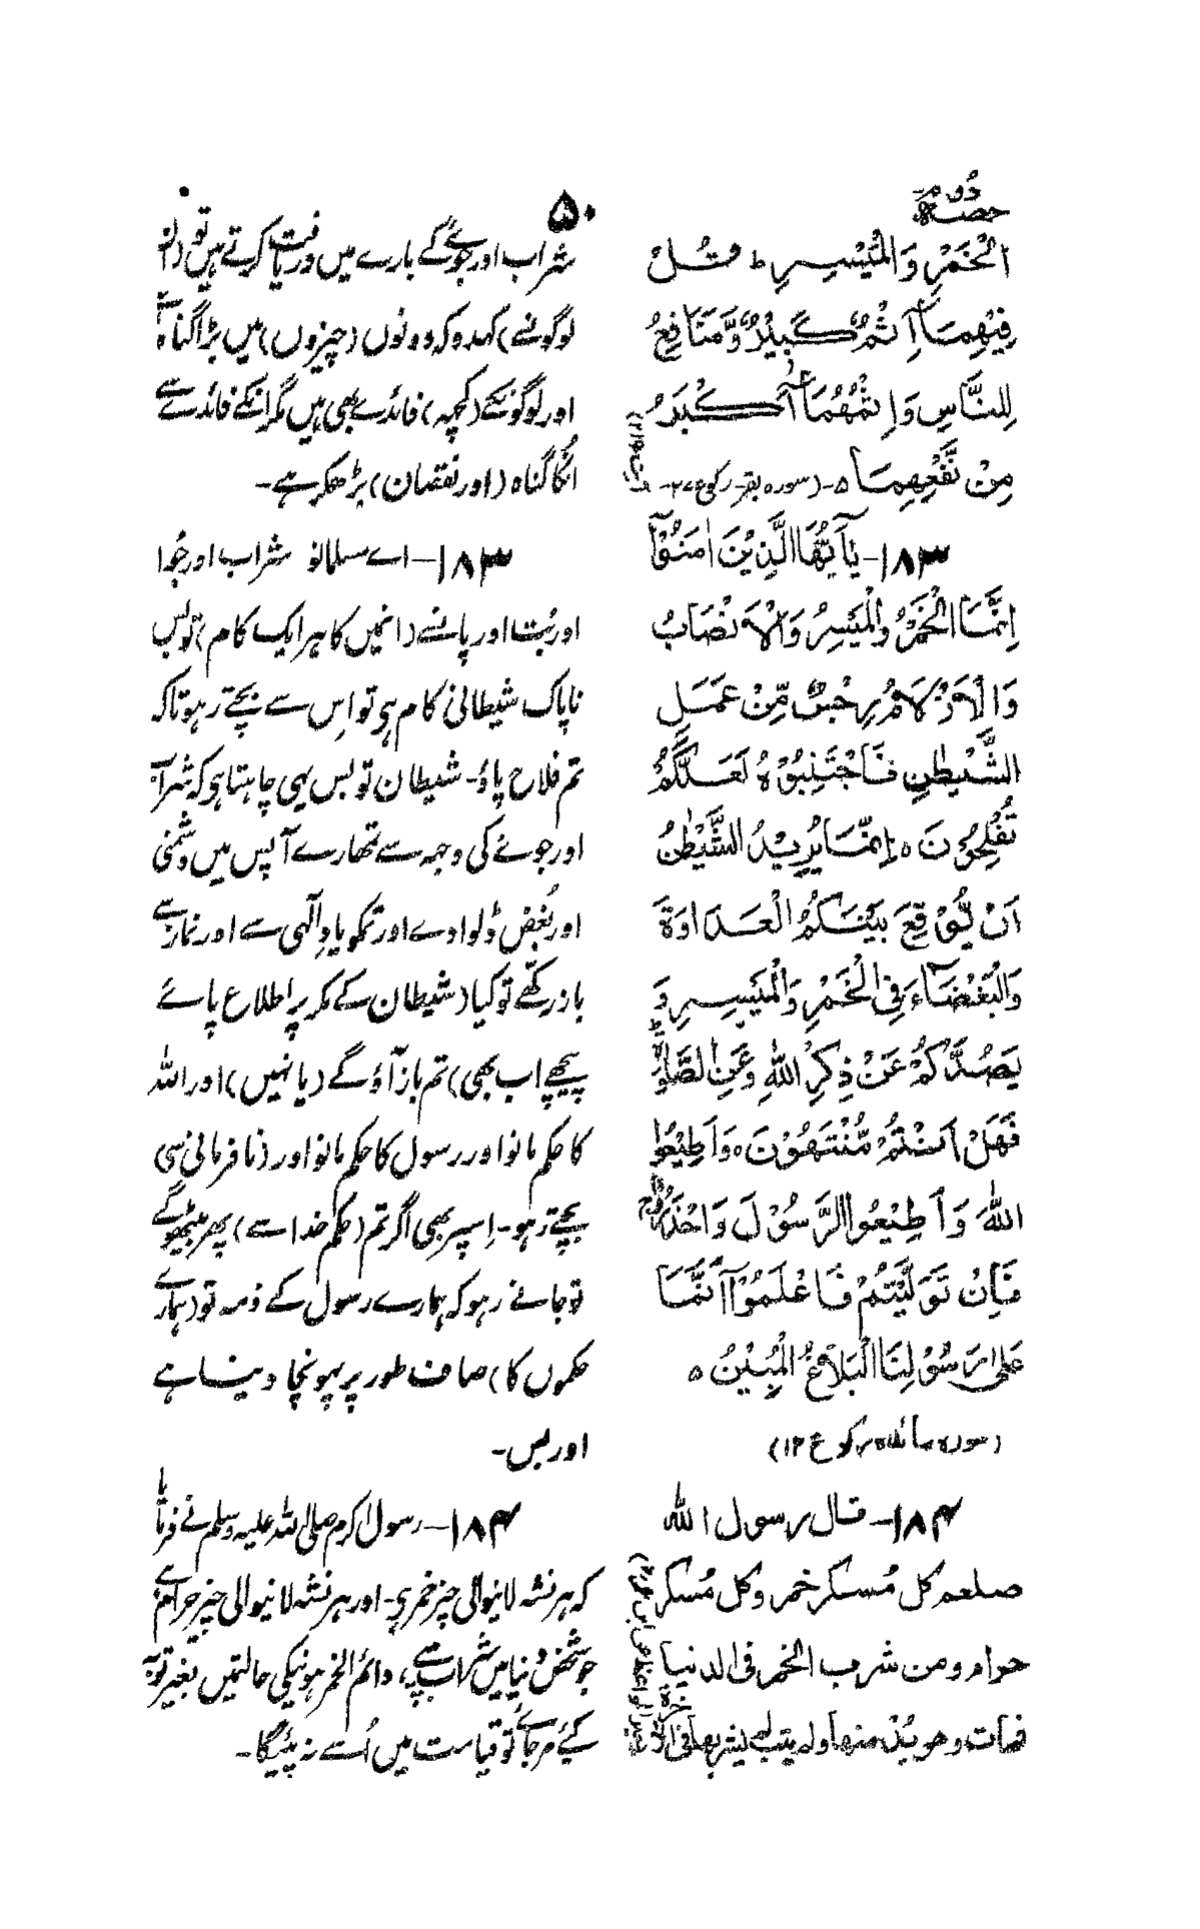 حصہ دوم
۵۰
الْخَمْرِ وَالْمَيْسِرِ ط قُلْ
فِيْهِمَا اِثْمٌ كَبِيْرٌ وَّمَنَافِعُ
لِلنَّاسِ وَاِثْمُهُمَا اَكْبَرُ
مِنْ نَّفْعِهِمَا ۵-(سورہ بقر رکوع ۲۷-
۱۸۳-يٰاَيُّهَا الَّذِيْنَ اٰمَنُوْۤا
اِنَّمَا الْخَمْرُ وَالْمَيْسِرُ وَالْاَنْصَابُ
وَالْاَزْلَامُ رِجْسٌ مِّنْ عَمَلِ
الشَّيْطٰنِ فَاجْتَنِبُوْهُ لَعَلَّكُمْ
تُفْلِحُوْنَ ہ اِنَّمَا يُرِيْدُ الشَّيْطٰنُ
اَنْ يُّوْقِعَ بَيْنَكُمُ الْعَدَاوَةَ
وَالْبَغْضَاءَ فِى الْخَمْرِ وَالْمَيْسِرِ وَ
يَصُدَّكُمْ عَنْ ذِكْرِ اللّٰهِ وَعَنِ الصَّلٰوةِ
فَهَلْ اَنْتُمْ مُّنْتَهُوْنَ ہ وَاَطِيْعُوا
اللّٰهَ وَاَطِيْعُوا الرَّسُوْلَ وَاحْذَرُوْا ج
فَاِنْ تَوَلَّيْتُمْ فَاعْلَمُوْۤا اَنَّمَا
عَلٰى رَسُوْلِنَا الْبَلَاغُ الْمُبِيْنُ ہ
(سورہ مائدہ رکوع ۱۲)
۱۸۴-قال رسول اللہ
صلعم كل مُسكر خمر وكل مُسكر
حرام ومن شرب الخمر فى الدنيا
فمات وهو يُدمنها ولم يتب لم يشربها فى الآخرة
شراب اور جوئے کے بارے میں دریافت کرتے ہیں تو (ان
لوگونسے) کہدو کہ دونوں (چیزوں) میں بڑا گناہ ہے
اور لوگونکے (کچھ) فائدے بھی ہیں مگر انکے فائدے سے
انکا گناہ (اور نقصان) بڑھکر ہے-
۱۸۳-اے مسلمانو شراب اور جُوا
اور بُت اور پانسے (انمیں کا ہر ایک کام) تو بس
ناپاک شیطانی کام ہی تو اِس سے بچتے رہو تاکہ
تم فلاح پاؤ- شیطان تو بس یہی چاہتا ہی کہ شراب
اور جوئے کی وجہ سے تمھارے آپس میں دشمنی
اور بُغض ڈلوادے اور تمکو یادِ الٰہی سے اور نماز سے
باز رکھے تو کیا (شیطان کے مکر پر اطلاع پائے
پیچھے اب بھی) تم باز آؤ گے (یا نہیں) اور اللہ
کا حکم مانو اور رسول کا حکم مانو اور (نافرمانی سی
بچتے رہو- اِسپر بھی اگر تم (حکم خدا سے) پھر بیٹھو گے
تو جانے رہو کہ ہمارے رسول کے ذمہ تو (ہمارے
حکموں کا) صاف طور پر پہونچا دینا ہے
اور بس-
۱۸۴-رسول اکرم صلی اللہ علیہ وسلم نے فرمایا
کہ ہر نشہ لانیوالی چیز خمر ہے- اور ہر نشہ لانیوالی چیز حرام ہے
جو شخص دنیا میں شراب پیے، دائم الخمر ہونیکی حالتمیں بغیر توبہ
کیے مر جائے تو قیامت میں اُسے نہ پئیگا-